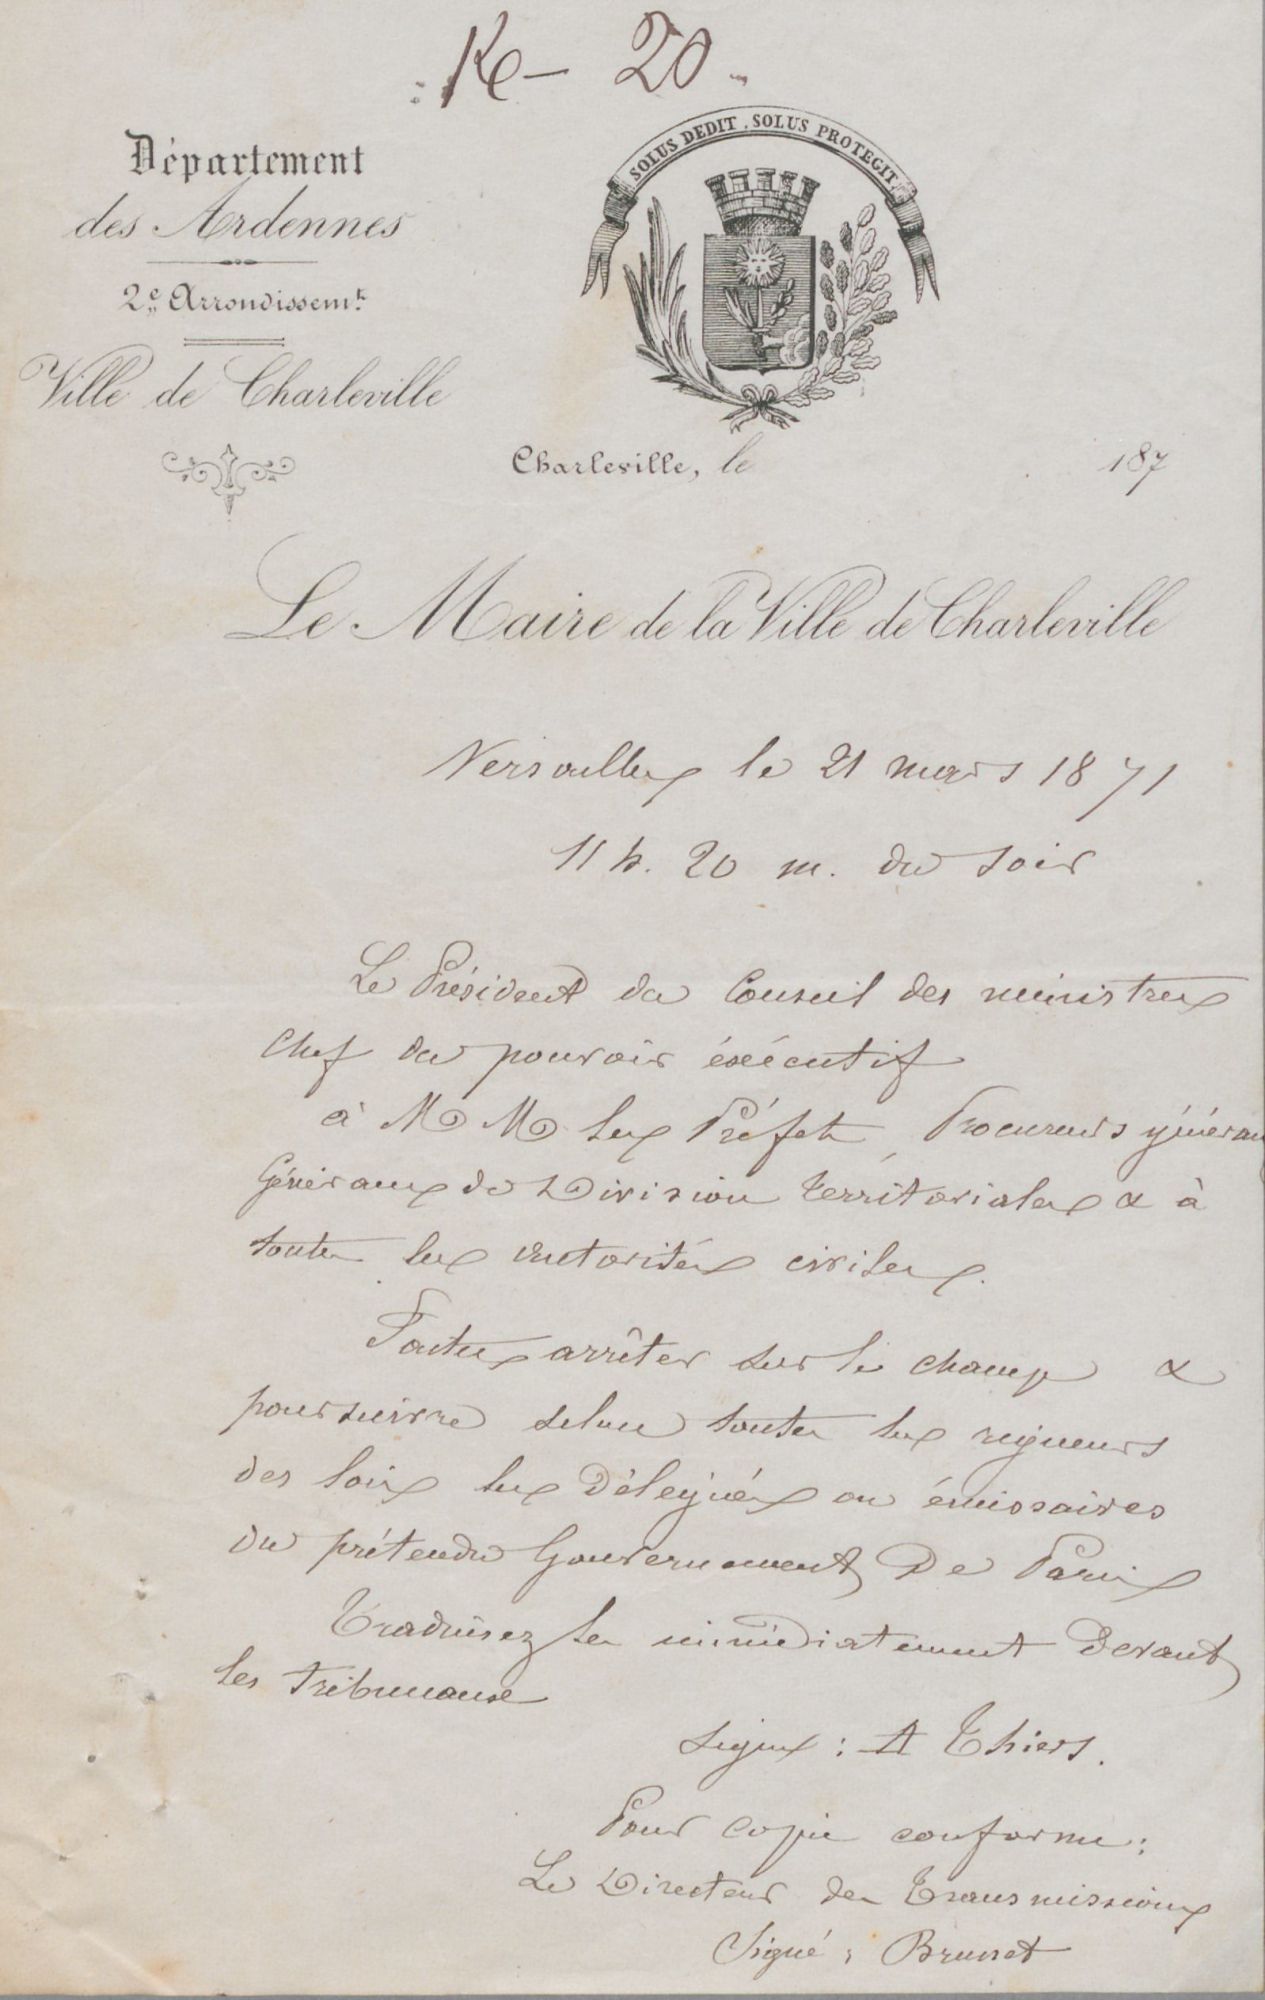 K – 20
SOLUS DEDIT . SOLUS PROTEGIT
Département
des Ardennes
2e Arrondissemt.
Ville de Charleville
Charleville, le 187
Le Maire de la Ville de Charleville
Versailles le 21 mars 1871
11 h. 20 m. du soir
Le Président du Conseil des ministres
chef du pouvoir éxécutif
à M M les Préfets Procureurs généraux
Généraux de Division térritoriales & à
toutes les autorités civiles.
Faites arrêter sur le champ &
poursuivre selon toutes les rigueurs
des lois les Délégués ou émissaires
du prétendu Gouvernement De Paris
Traduisez les immédiatement devant
les tribunaux
Signé : A Thiers.
Pour copie conforme :
Le Directeur des Transmissions
Signé : Brunet